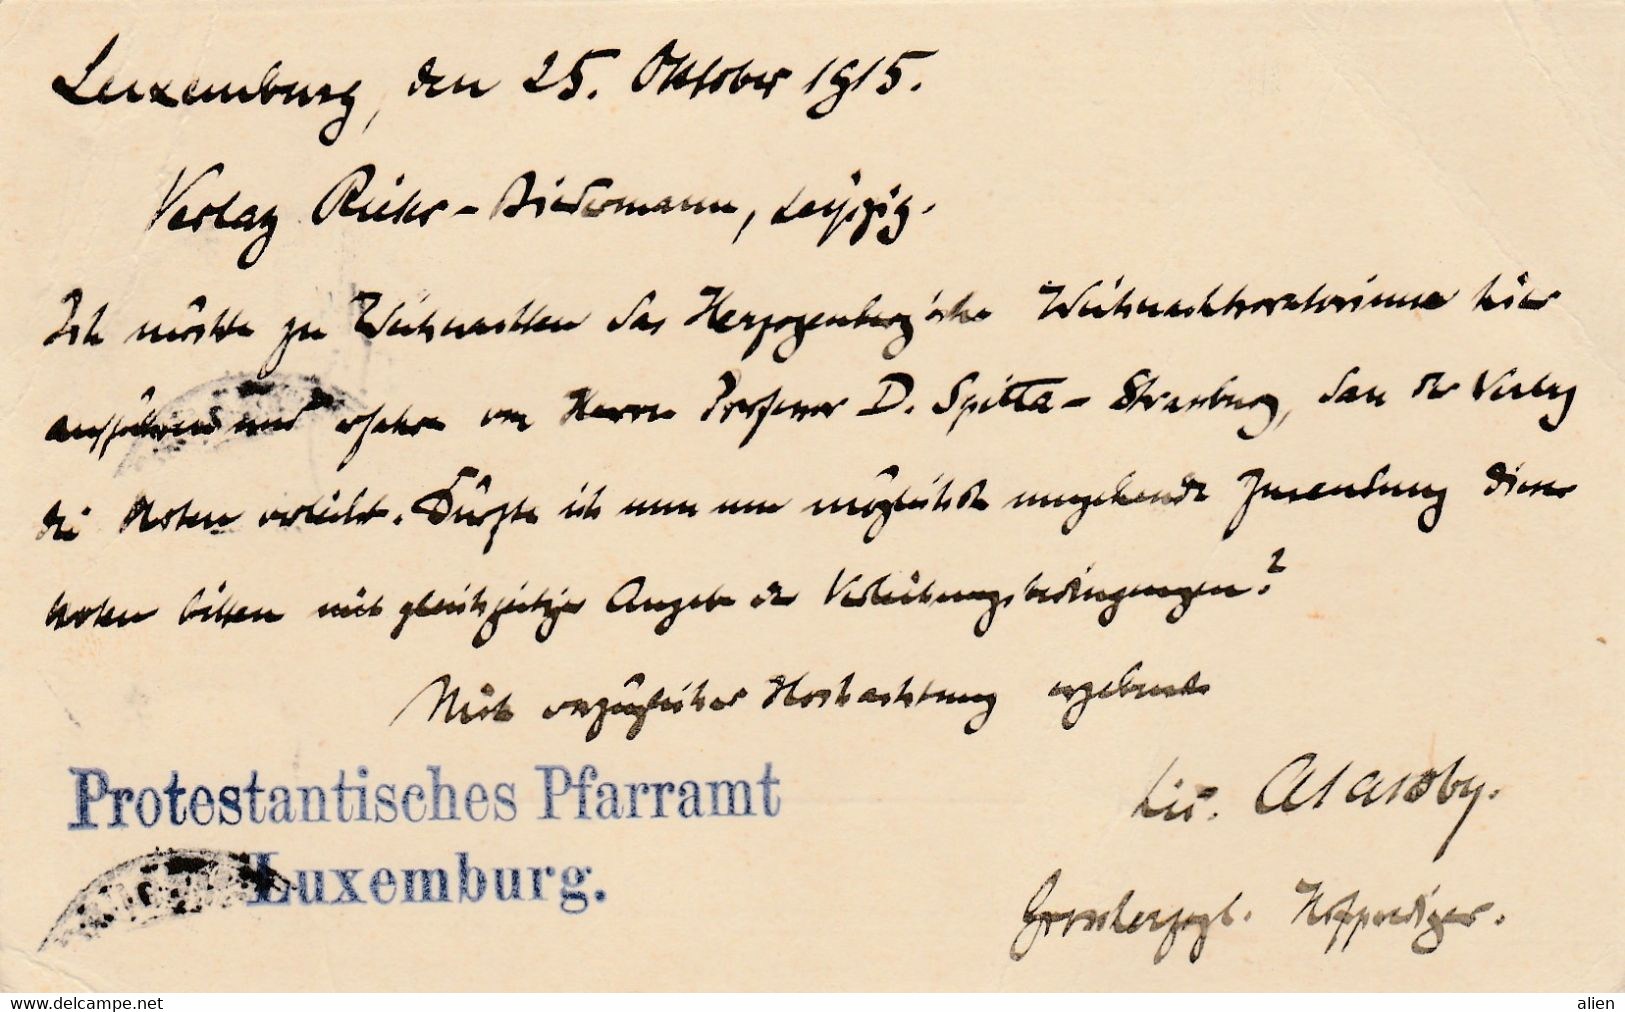 Luxemburg, den 25. Oktober 1915.
Verlag Rieter-Biedermann, Leipzig.
Ich möchte zu Weihnachten das Herzogenberg'sche Weihnachtsoratorium hier
aufführen und erfahre von Herrn Professor D. Spitta - Strassburg, dass der Verlag
die Noten verleiht. Dürfte ich nun um möglichst umgehende Zusendung dieser
Noten bitten mit gleichzeitiger Angabe der Verleihungsbedingungen?
Mit vorzüglicher Hochachtung ergebenst
Lic.
Grossherzogl. Hofprediger.
Protestantisches Pfarramt
Luxemburg.
www.delcampe.net
alien